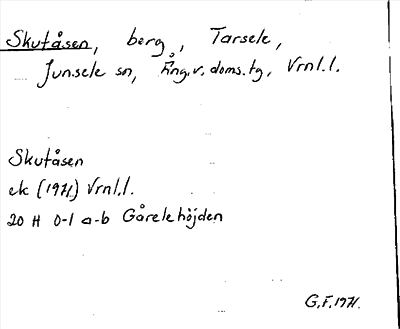 Skutåsen, berg, Tarsele,
Junsele sn, Ång.v.doms.tg, Vrnl.l.
Skutåsen
ek (1971) Vrnl.l.
20 H 0-1 a-b Gårelehöjden
G.F. 1971.